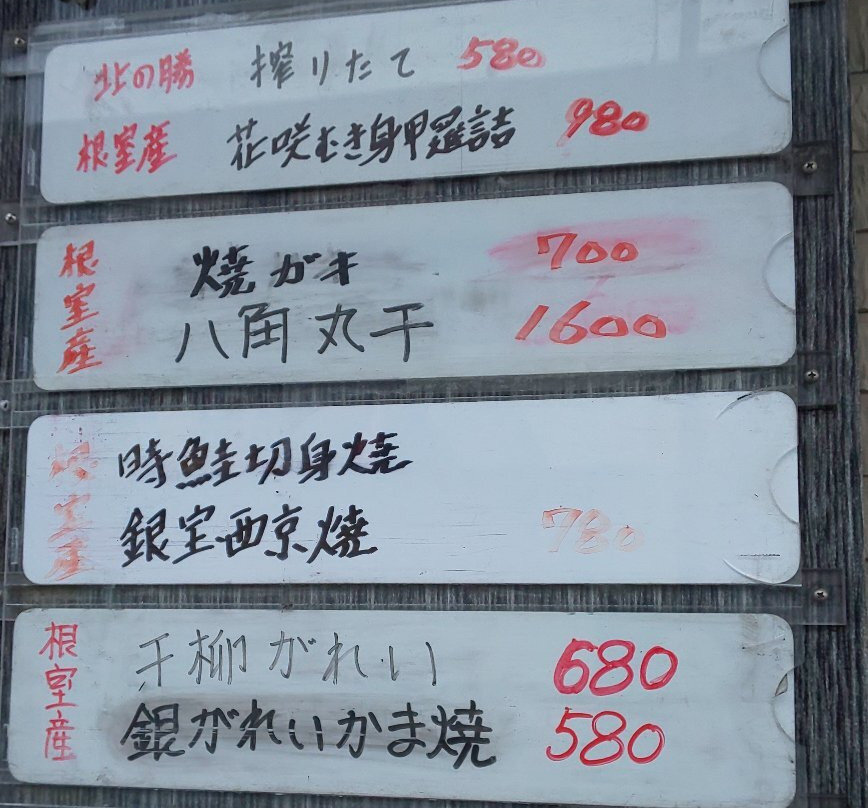 北の勝 搾りたて 580
根室産 花咲むき身甲羅詰 980
根室産
焼ガキ 700
八角丸干 1600
根室産
時鮭切身焼
銀宝西京焼 780
根室産
干柳がれい 680
銀がれいかま焼 580